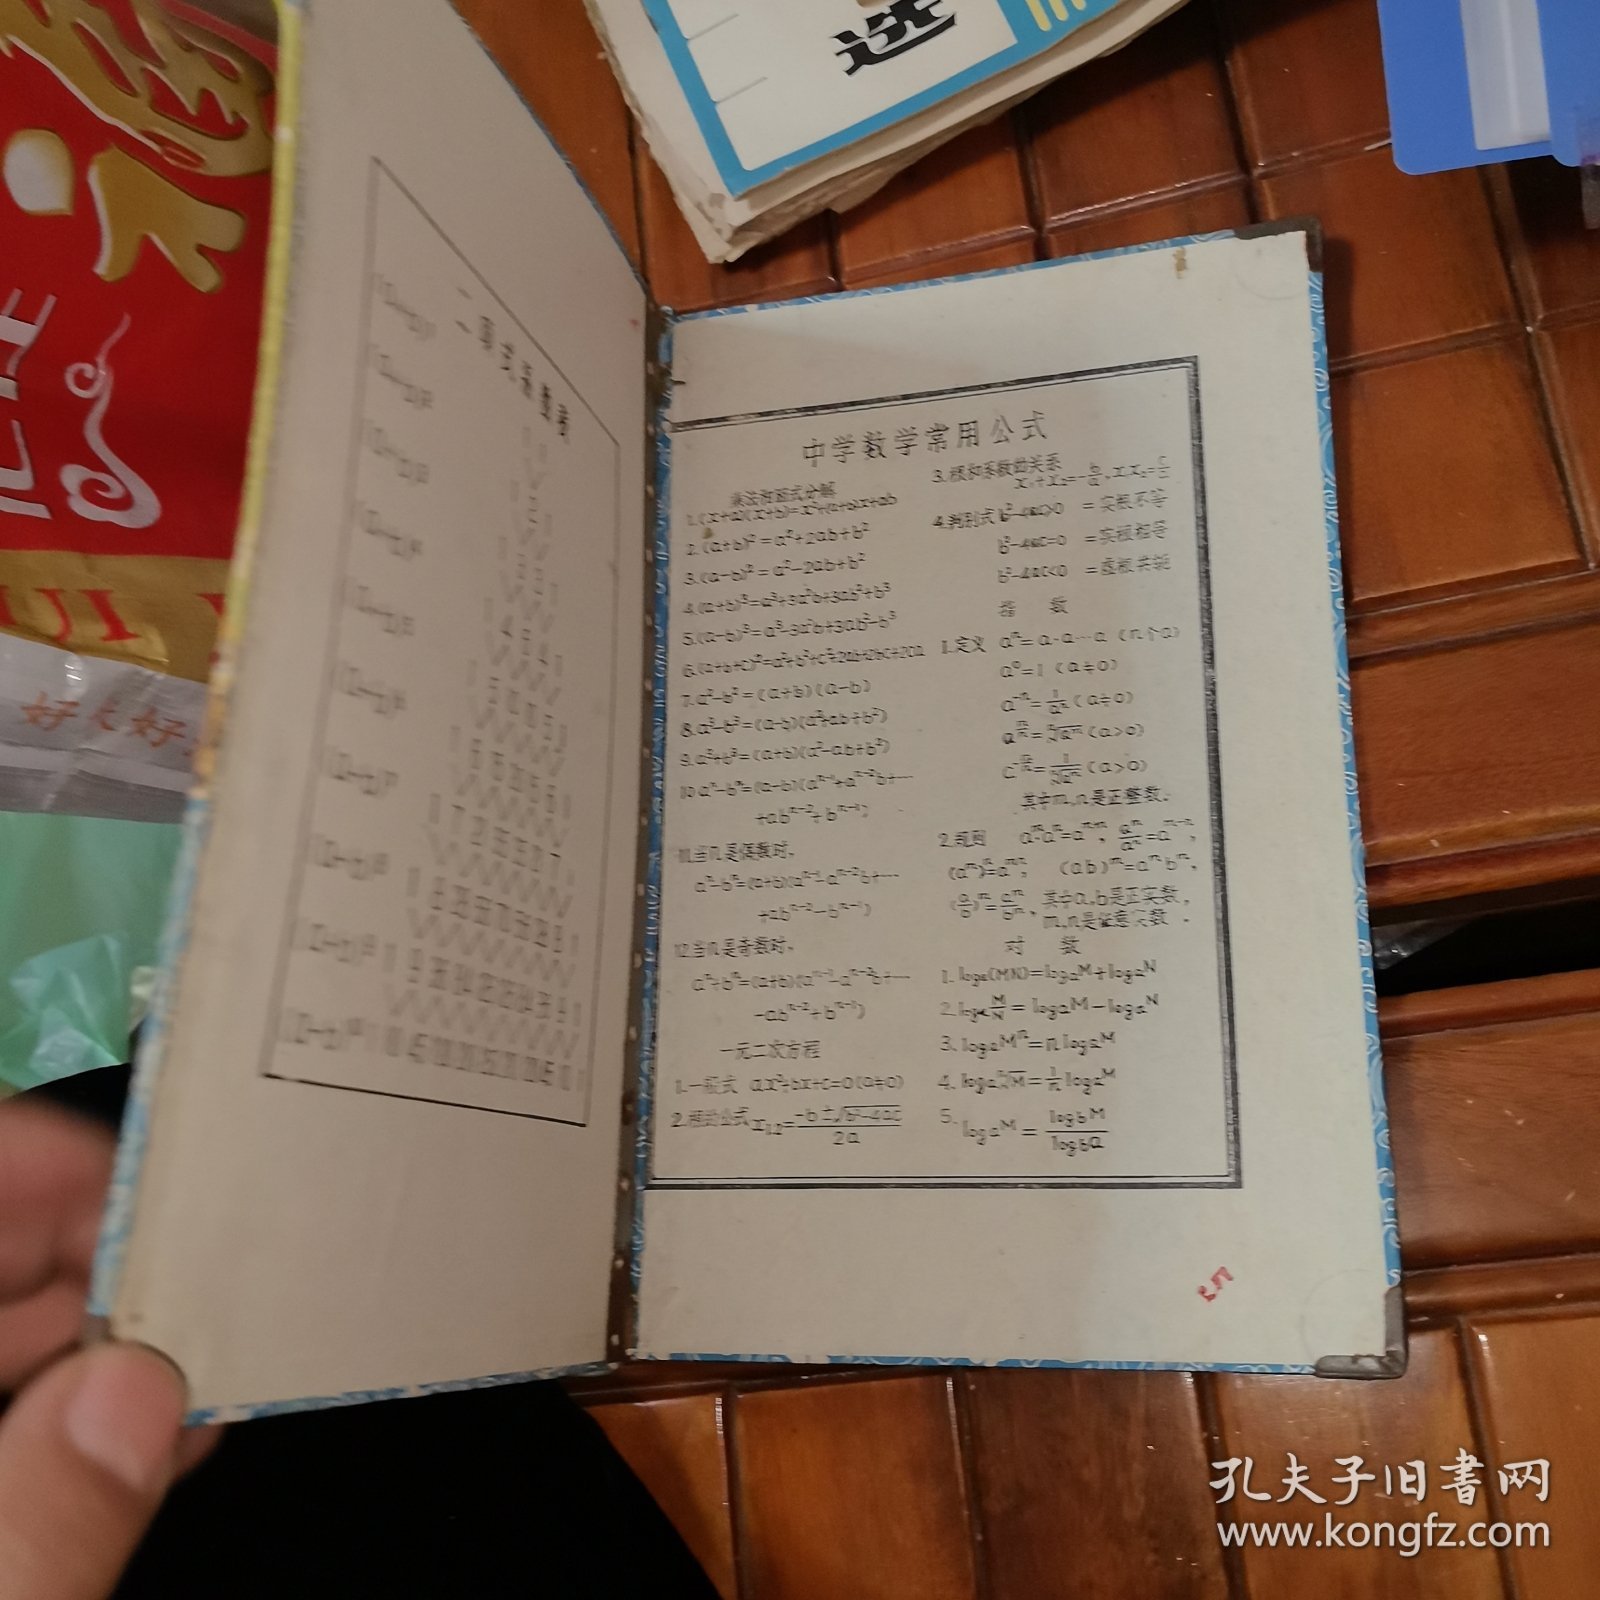 选
好人好
二项式系数表
1 1
1 4 6 4 1
1 5 10 10 5 1
1 6 15 20 15 6 1
1 7 21 35 35 21 7 1
1 8 28 56 70 56 28 8 1
1 9 36 84 126 126 84 36 9 1
1 10 45 120 210 252 210 120 45 10 1
中学数学常用公式
乘法和因式分解
1.(x+a)(x+b)=x²+(a+b)x+ab
2.(a+b)²=a²+2ab+b²
3.(a-b)²=a²-2ab+b²
4.(a+b)³=a³+3a²b+3ab²+b³
5.(a-b)³=a³-3a²b+3ab²-b³
6.(a+b+c)²=a²+b²+c²+2ab+2bc+2ca
7.a²-b²=(a+b)(a-b)
8.a³-b³=(a-b)(a²+ab+b²)
9.a³+b³=(a+b)(a²-ab+b²)
10.aⁿ-bⁿ=(a-b)(aⁿ⁻¹+aⁿ⁻²b+…
+abⁿ⁻²+bⁿ⁻¹)
11.当n是偶数时,
aⁿ-bⁿ=(a+b)(aⁿ⁻¹-aⁿ⁻²b+…
+abⁿ⁻²-bⁿ⁻¹)
12.当n是奇数时,
aⁿ+bⁿ=(a+b)(aⁿ⁻¹-aⁿ⁻²b+…
-abⁿ⁻²+bⁿ⁻¹)
一元二次方程
1.一般式 ax²+bx+c=0(a≠0)
2.根的公式 x₁,₂=(-b±√(b²-4ac))/2a
3.根和系数的关系
x₁+x₂=-b/a, x₁x₂=c/a
4.判别式 b²-4ac>0 =实根不等
b²-4ac=0 =实根相等
b²-4ac<0 =虚根共轭
指 数
1.定义 aⁿ=a·a…a (n个a)
a⁰=1 (a≠0)
a⁻ⁿ=1/aⁿ (a≠0)
a^(m/n)=ⁿ√aᵐ (a>0)
a^(-m/n)=1/ⁿ√aᵐ (a>0)
其中m,n是正整数.
2.规则 aᵐ·aⁿ=aᵐ⁺ⁿ, aᵐ/aⁿ=aᵐ⁻ⁿ,
(aᵐ)ⁿ=aᵐⁿ, (ab)ᵐ=aᵐbᵐ,
(a/b)ᵐ=aᵐ/bᵐ, 其中a,b是正实数,
m,n是任意实数.
对 数
1.logₐ(MN)=logₐM+logₐN
2.logₐM/N=logₐM-logₐN
3.logₐMⁿ=n logₐM
4.logₐⁿ√M=1/n logₐM
5.logₐM=log_bM/log_ba
孔夫子旧书网
www.kongfz.com